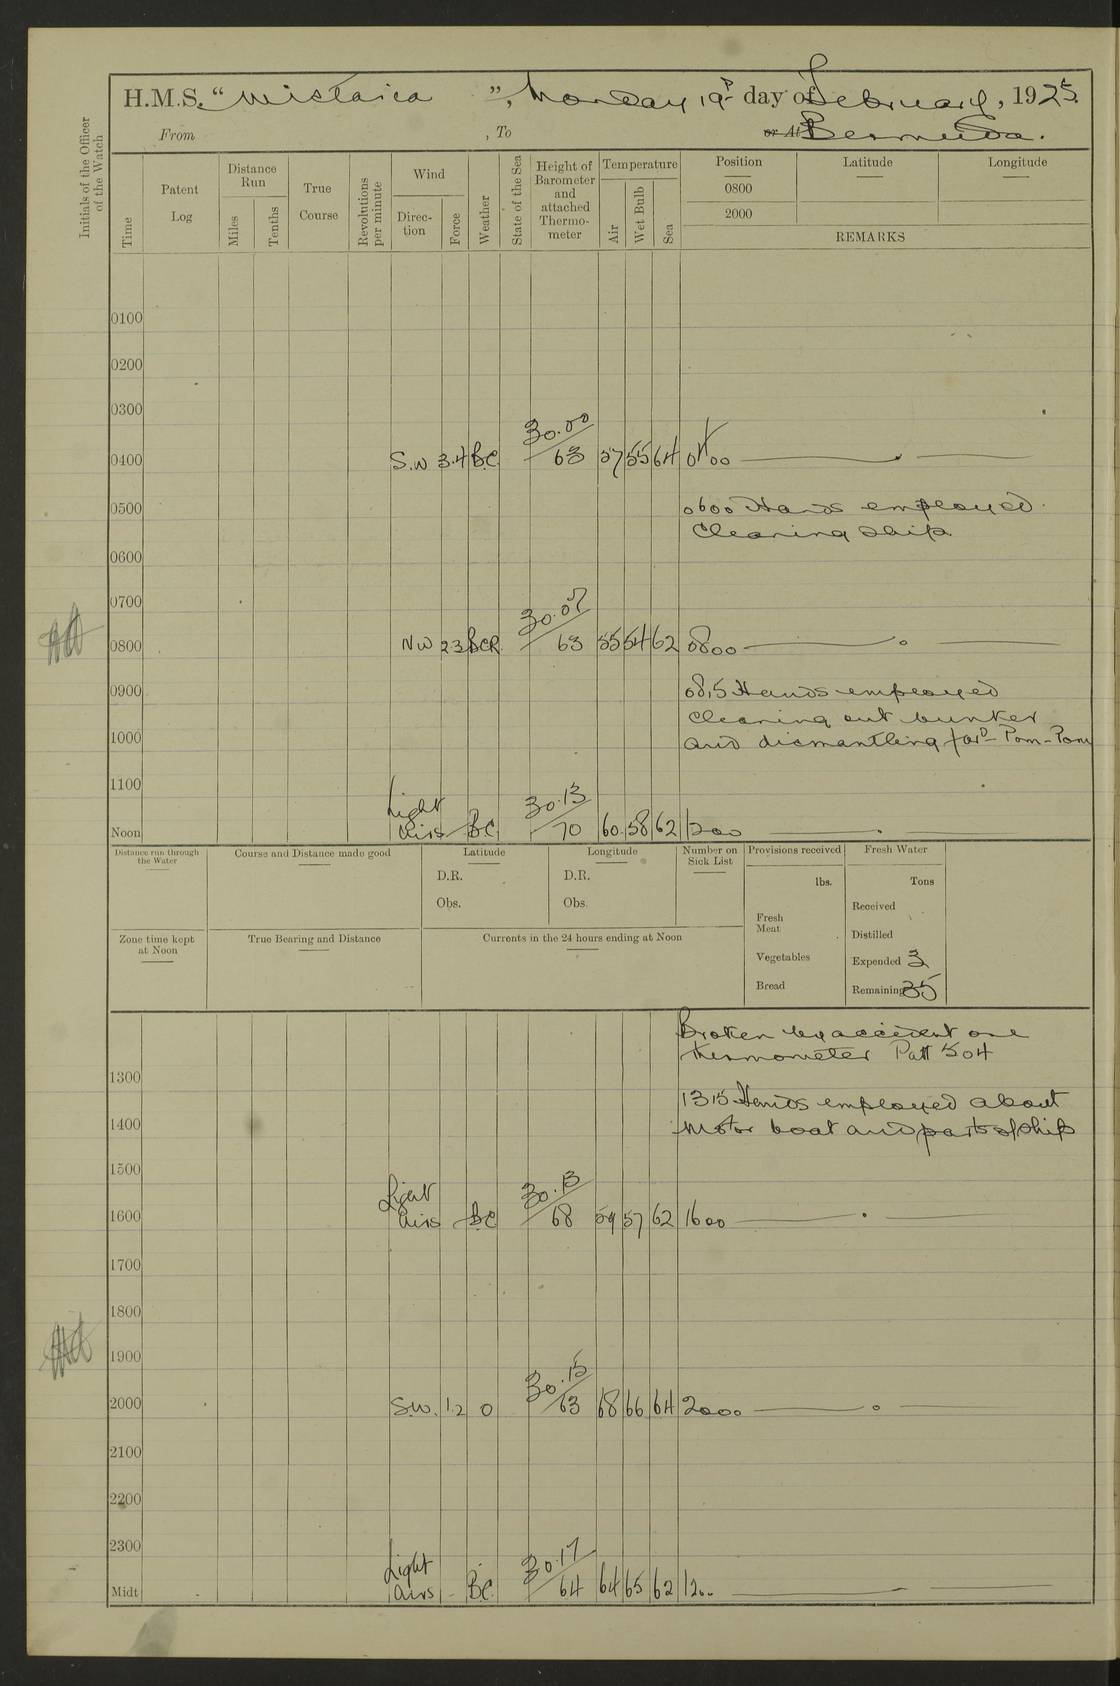 H.M.S. "Wistaria", Monday 19th day of February, 1925.
From , To or At Bermuda.
Initials of the Officer of the Watch
Time
Patent Log
Distance Run
Miles
Tenths
True Course
Revolutions per minute
Wind
Direc-tion
Force
Weather
State of the Sea
Height of Barometer and attached Thermo-meter
Temperature
Air
Wet Bulb
Sea
Position Latitude Longitude
0800
2000
REMARKS
0100
0200
0300
0400 S.W 3.4 BC 30.00/63 57 55 64 0400
0500 0600 Hands employed
Cleaning Ship.
0600
0700
0800 NW 2.3 BCR 30.07/63 55 54 62 0800
0900 0815 Hands employed
Clearing out bunker
1000 and dismantling for'd Pom-Pom
1100
Noon Light Airs BC 30.13/70 60 58 62 1200
Distance run through the Water
Course and Distance made good
Latitude
D.R.
Obs.
Longitude
D.R.
Obs.
Number on Sick List
Provisions received
lbs.
Fresh Meat
Vegetables
Bread
Fresh Water
Tons
Received
Distilled
Expended 3
Remaining 35
Zone time kept at Noon
True Bearing and Distance
Currents in the 24 hours ending at Noon
Broken by accident one
thermometer Patt 504
1300
1315 Hands employed about
1400 Motor boat and parts of ship
1500
1600 Light Airs BC 30.13/68 59 57 62 1600
1700
1800
1900
2000 S.W. 1.2 O 30.15/63 68 66 64 2000
2100
2200
2300
Midt Light Airs - BC. 30.17/64 64 65 62 1200